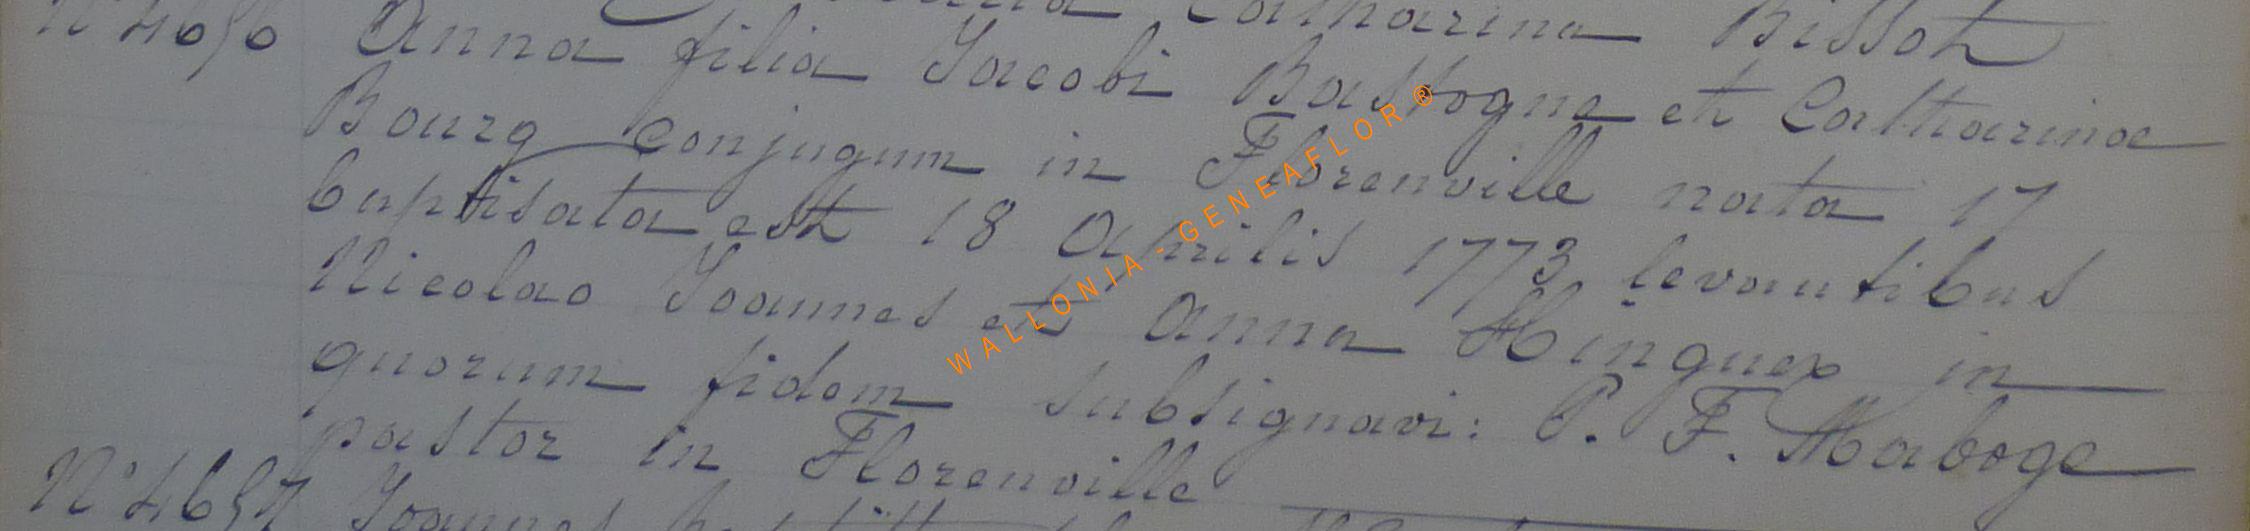 Catharina Bissot
N° 4656 Anna filia Jacobi Bastogne et Catharinae
Bourg conjugum in Florenville nata 17
baptisata est 18 aprilis 1773 levantibus
Nicolao Joannes et Anna Hinguex in
quorum fidem subsignavi: P. F. Maboge
pastor in Florenville
N° 4657 Joannes
WALLONIA - GENEAFLOR ®